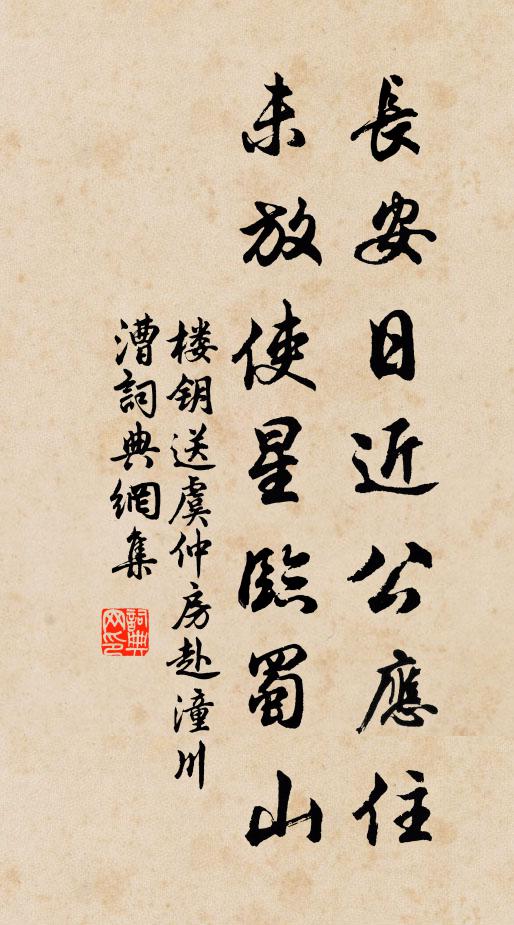 長安日近公應住
未放使星臨蜀山
楼钥送虞仲房赴潼川
漕詞典網集
詞典网印